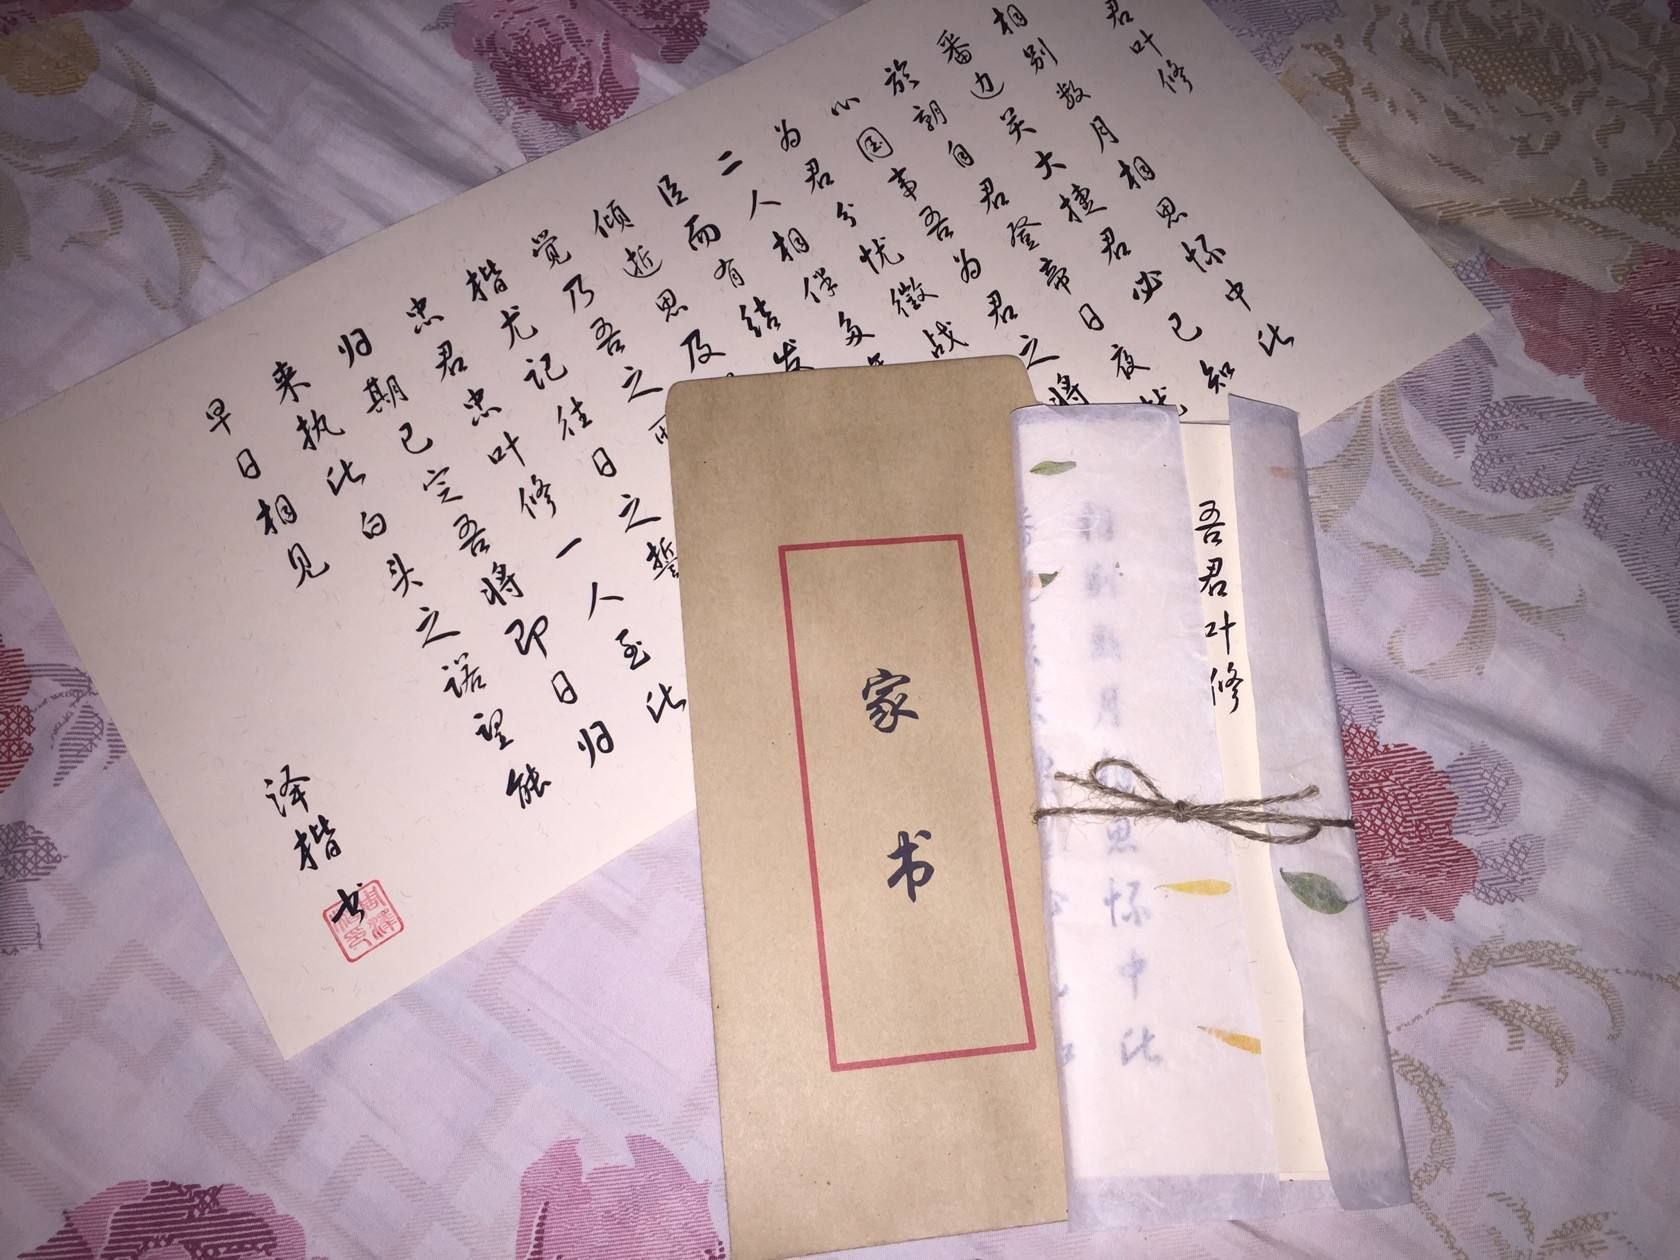 君叶修
相别数月相思怀中此
番边关大捷君必已知
於朝自君登帝日夜
心国事吾为君之将
为君分忧徵战
二人相伴多年
臣而有结发
倾逝思及
觉乃吾之
楷尤记往日之誓
忠君忠叶修一人至此
归期已定吾将即日归
来执此白头之诺望能
早日相见
泽楷书
家书
吾君叶修
相别数月相思怀中此